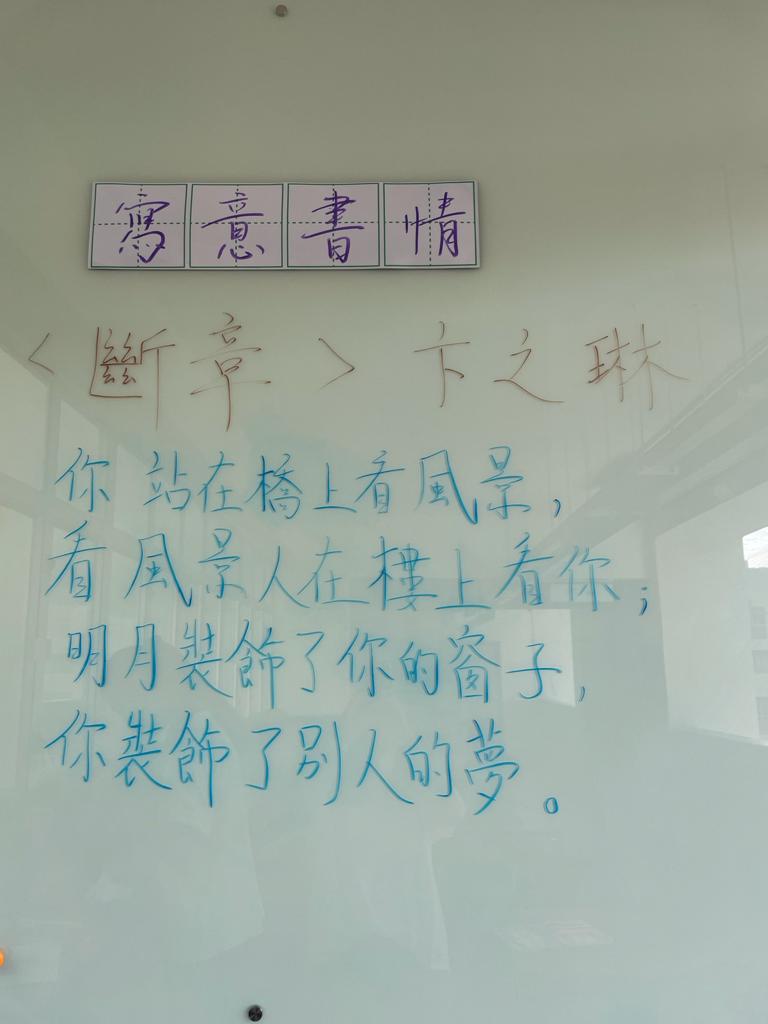 寫意書情
〈斷章〉卞之琳
你站在橋上看風景，
看風景人在樓上看你；
明月裝飾了你的窗子，
你裝飾了別人的夢。